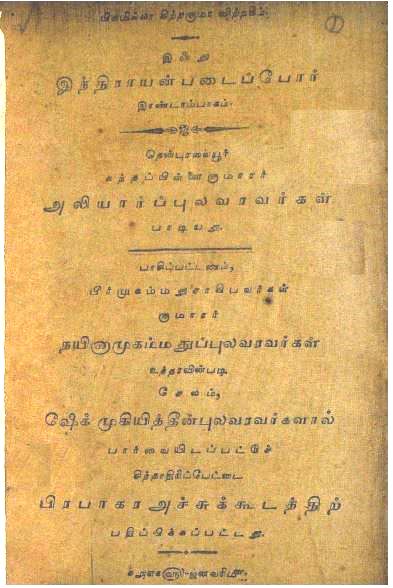 பிசுமில்லா கிற்றகுமா னிற்றகீம்.
①
இஃது
இந்திராயன்படைப்போர்
இரண்டாம்பாகம்.
தென்புரசையூர்
கந்தப்பிள்ளைகுமாரர்
அலியார்ப்புலவரவர்கள்
பாடியது.
பாசிப்பட்டணம்,
பீர்முகம்மதுசாகிபவர்கள்
குமாரர்
நயினாமுகம்மதுப்புலவரவர்கள்
உத்தரவின்படி
சேலம்,
ஷேக் முகியித்தீன்புலவரவர்களால்
பார்வையிடப்பட்டுச்
சிந்தாதிரிப்பேட்டை
பிரபாகரஅச்சுக்கூடத்திற்
பதிப்பிக்கப்பட்டது.